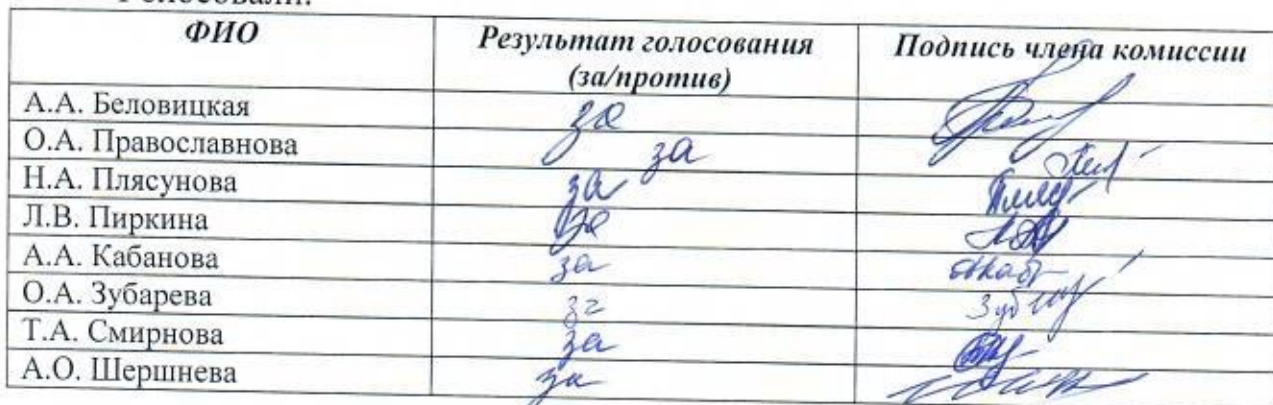 Голосовали:
ФИО Результат голосования (за/против) Подпись члена комиссии
А.А. Беловицкая за
О.А. Православнова за
Н.А. Плясунова за
Л.В. Пиркина за
А.А. Кабанова за
О.А. Зубарева за
Т.А. Смирнова за
А.О. Шершнева за